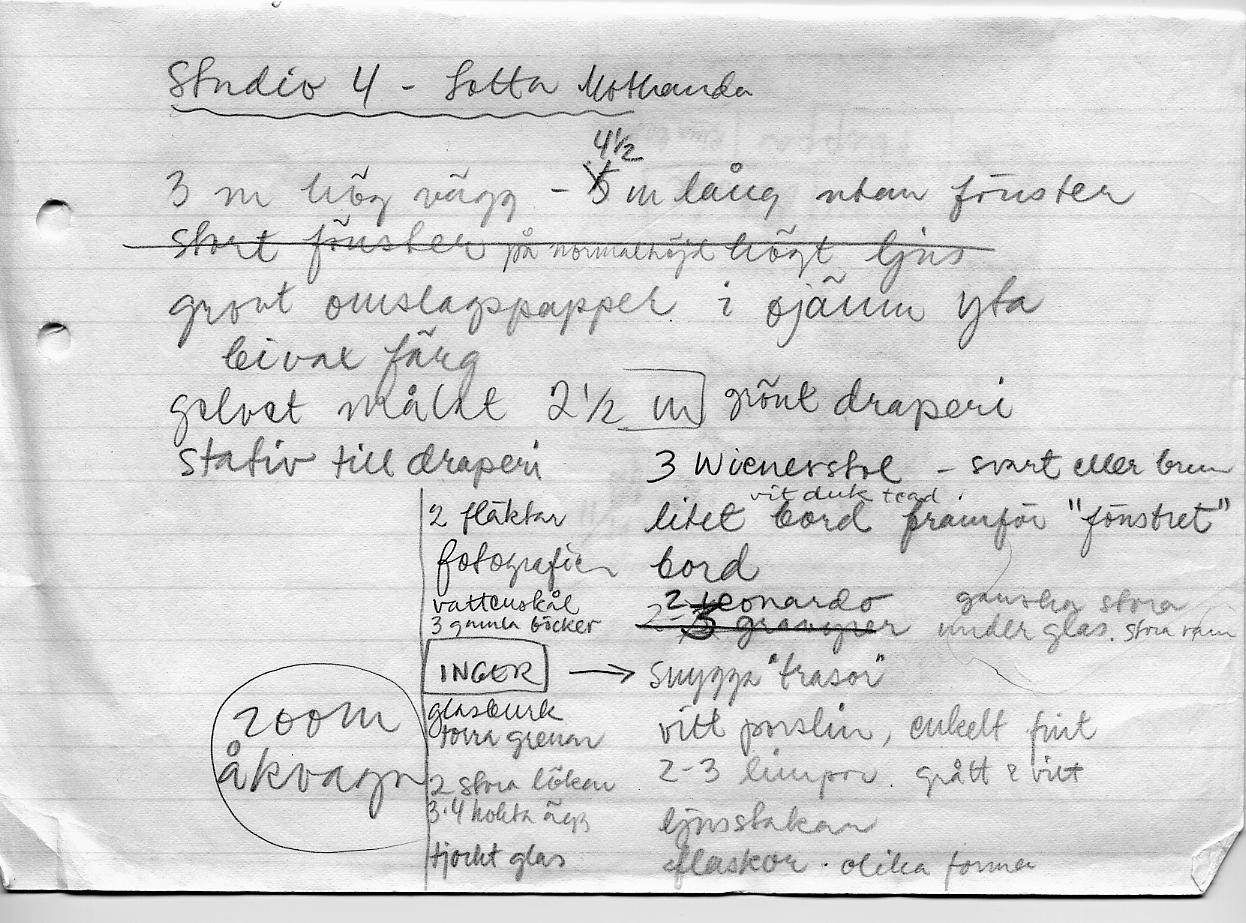 Studio 4 - Lotta Mothanda
4 1/2
3 m hög vägg - 5 m lång utan fönster
stort fönster på normalhöjd högt ljus
grovt omslagspapper i ojämn yta
bivax färg
golvet målat 2 1/2 m grönt draperi
stativ till draperi
3 Wienerstol - svart eller brun
vit duk
2 fläktar
litet bord framför "fönstret"
fotografier
bord
vattenskål
2 Leonardo ganska stora
3 gamla böcker
2-3 gravyrer under glas. stora ram
INGER → snygga "trasor"
glasburk
torra grenar
vitt porslin, enkelt fint
zoom
åkvagn
2 stora lökar
2-3 limpor. grått & vitt
3-4 kokta ägg
ljusstakar
tjockt glas
flaskor. olika former